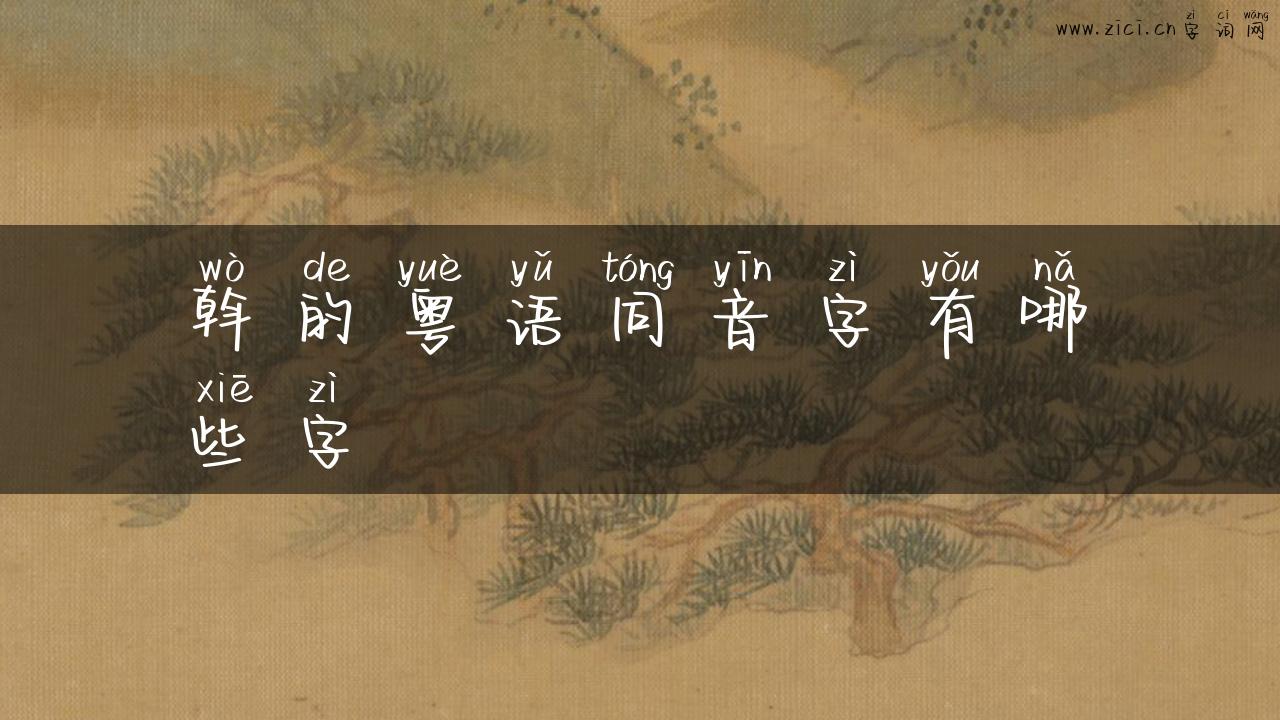 zì cí wǎng
www.zici.cn 字词网
wò de yuè yǔ tóng yīn zì yǒu nǎ
斡的粤语同音字有哪
xiē zì
些字